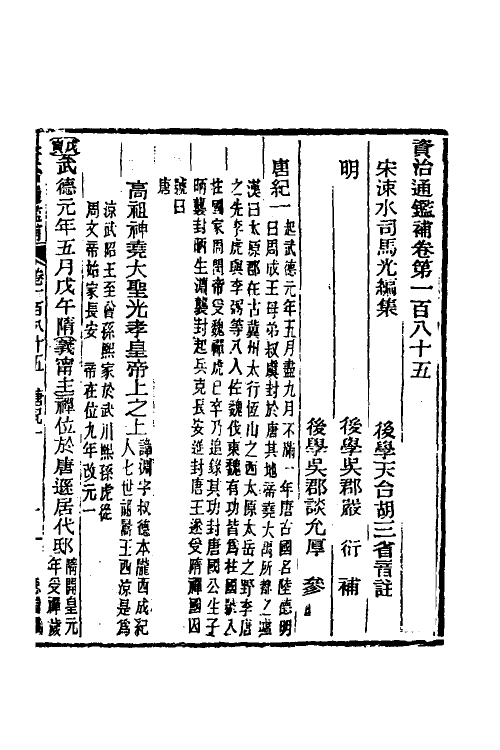 資治通鑑補卷第一百八十五
宋涑水司馬光編集
後學天台胡三省音註
明
後學吳郡嚴衍補
後學吳郡談允厚參
唐紀一起武德元年五月盡九月不滿一年唐古國名陸德明
曰周成王母弟叔虞封於唐其地帝堯大禹所都之墟
漢曰太原郡在古冀州太行恆山之西太原太岳之野李唐
之先李虎與李弼等八人佐魏後東魏有功皆為柱國號八
柱國家周閔帝受魏禪虎已卒乃追錄其功封唐國公生子
昞襲封昞生淵襲封起兵克長安進封唐王遂受隋禪國因
號曰
唐
高祖神堯大聖光孝皇帝上之上諱淵字叔德本隴西成紀
人七世祖暠王西涼是為
涼武昭王至曾孫熙家於武川熙孫虎從
周文帝始家長安 帝在位九年改元一
戊寅武德元年五月戊午隋義甯主禪位於唐遜居代邸隋開皇元
年受禪歲
鑑補
卷一百八十五
唐紀一
一